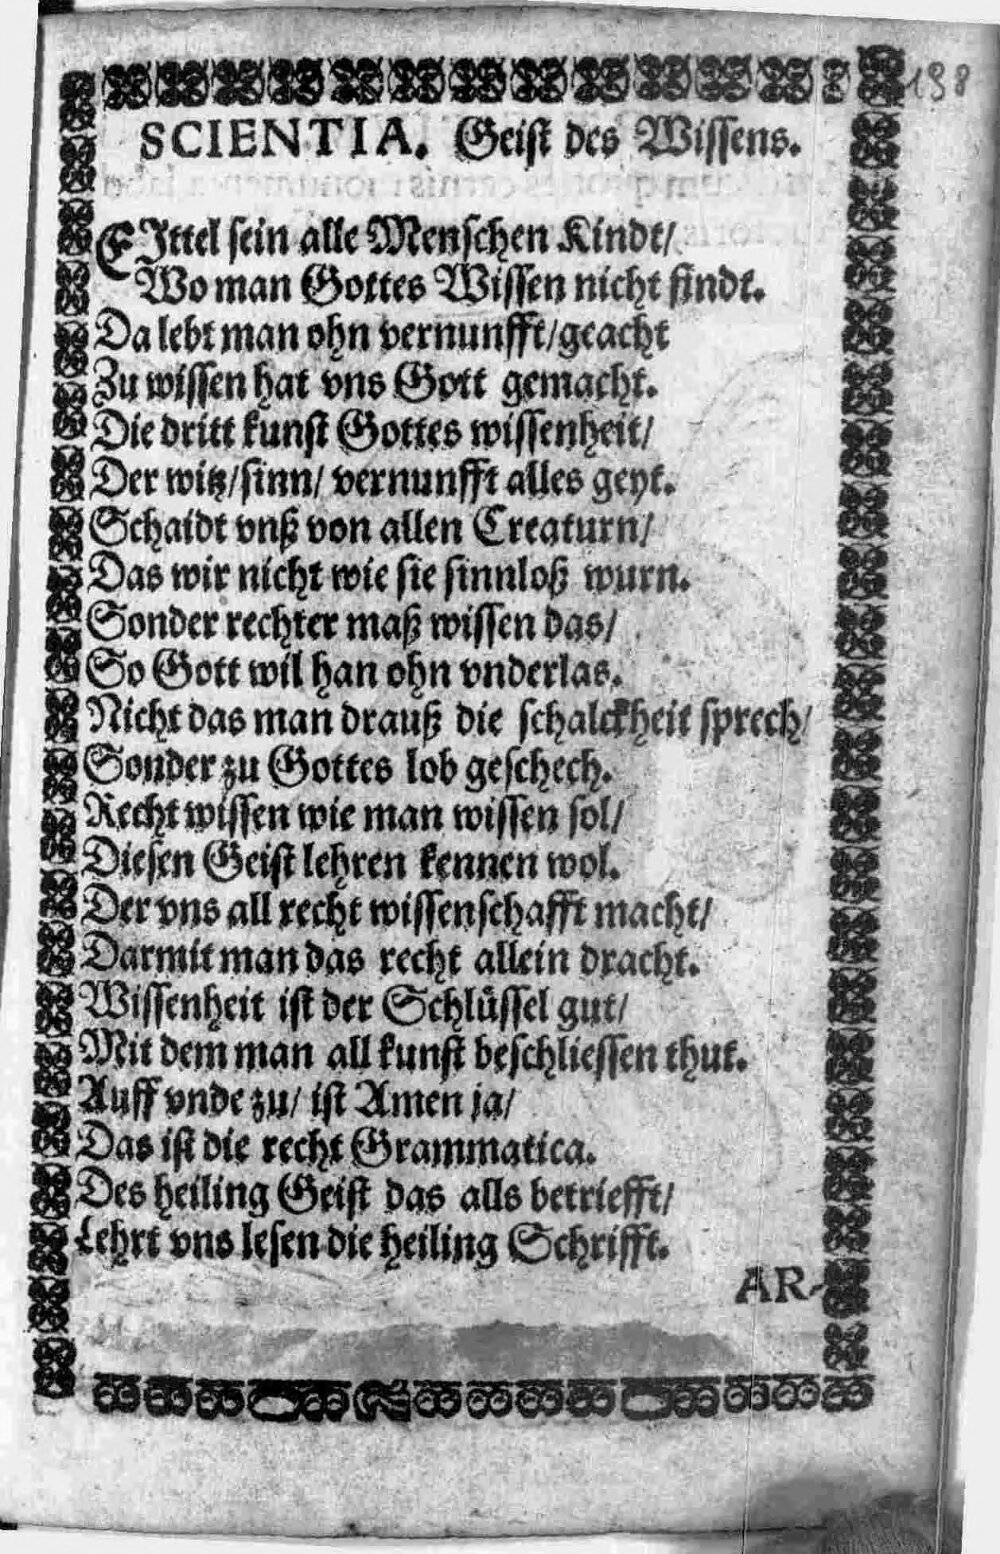 198
SCIENTIA. Geist des Wissens.
EJttel sein alle Menschen Kindt/
Wo man Gottes Wissen nicht findt.
Da lebt man ohn vernunfft/geacht
Zu wissen hat vns Gott gemacht.
Die dritt kunst Gottes wissenheit/
Der witz/sinn/ vernunfft alles geyt.
Schaidt vnß von allen Creaturn/
Das wir nicht wie sie sinnloß wurn.
Sonder rechter maß wissen das/
So Gott wil han ohn vnderlas.
Nicht das man drauß die schalckheit sprech/
Sonder zu Gottes lob geschech.
Recht wissen wie man wissen sol/
Diesen Geist lehren kennen wol.
Der vns all recht wissenschafft macht/
Darmit man das recht allein dracht.
Wissenheit ist der Schlüssel gut/
Mit dem man all kunst beschliessen thut.
Auff vnde zu/ ist Amen ja/
Das ist die recht Grammatica.
Des heiling Geist das alls betriefft/
Lehrt vns lesen die heiling Schrifft.
AR-